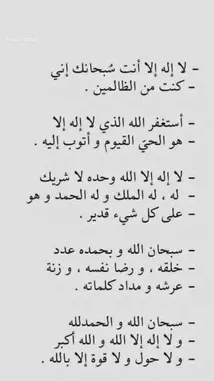 – لا إله إلا أنت سُبحانك إني
– كنت من الظالمين .
– أستغفر الله الذي لا إله إلا
– هو الحيّ القيوم و أتوب إليه .
– لا إله إلا الله وحده لا شريك
– له ، له الملك و له الحمد و هو
– على كل شيء قدير .
– سبحان الله و بحمده عدد
– خلقه ، و رضا نفسه ، و زنة
– عرشه و مداد كلماته .
– سبحان الله و الحمدلله
– و لا إله إلا الله و الله أكبر
– و لا حول و لا قوة إلا بالله .